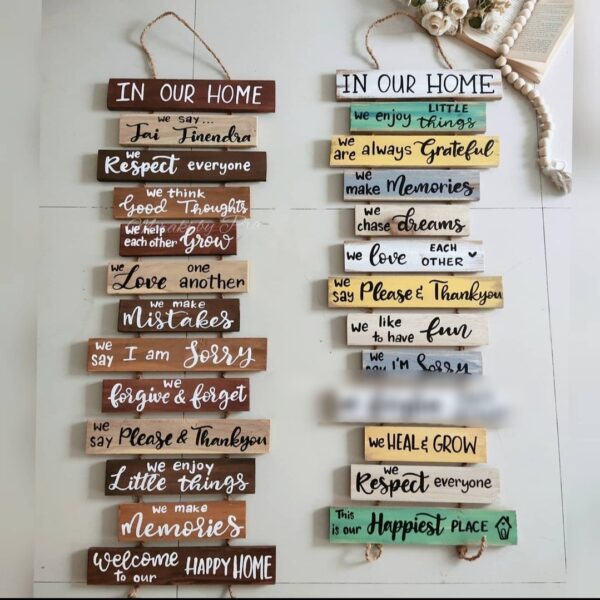 IN OUR HOME
we say...
Jai Jinendra
we
Respect everyone
we think
Good Thoughts
we help
each other Grow
we one
Love another
we make
Mistakes
we
say I am Sorry
we
forgive & forget
we
say Please & Thankyou
we enjoy
Little things
we make
Memories
welcome
to our HAPPY HOME
IN OUR HOME
LITTLE
we enjoy things
we
are always Grateful
we
make Memories
we
chase dreams
we love EACH
OTHER
we
say Please & Thankyou
we like
to have fun
we
say I'M Sorry
we HEAL & GROW
we
Respect everyone
This
is our Happiest PLACE